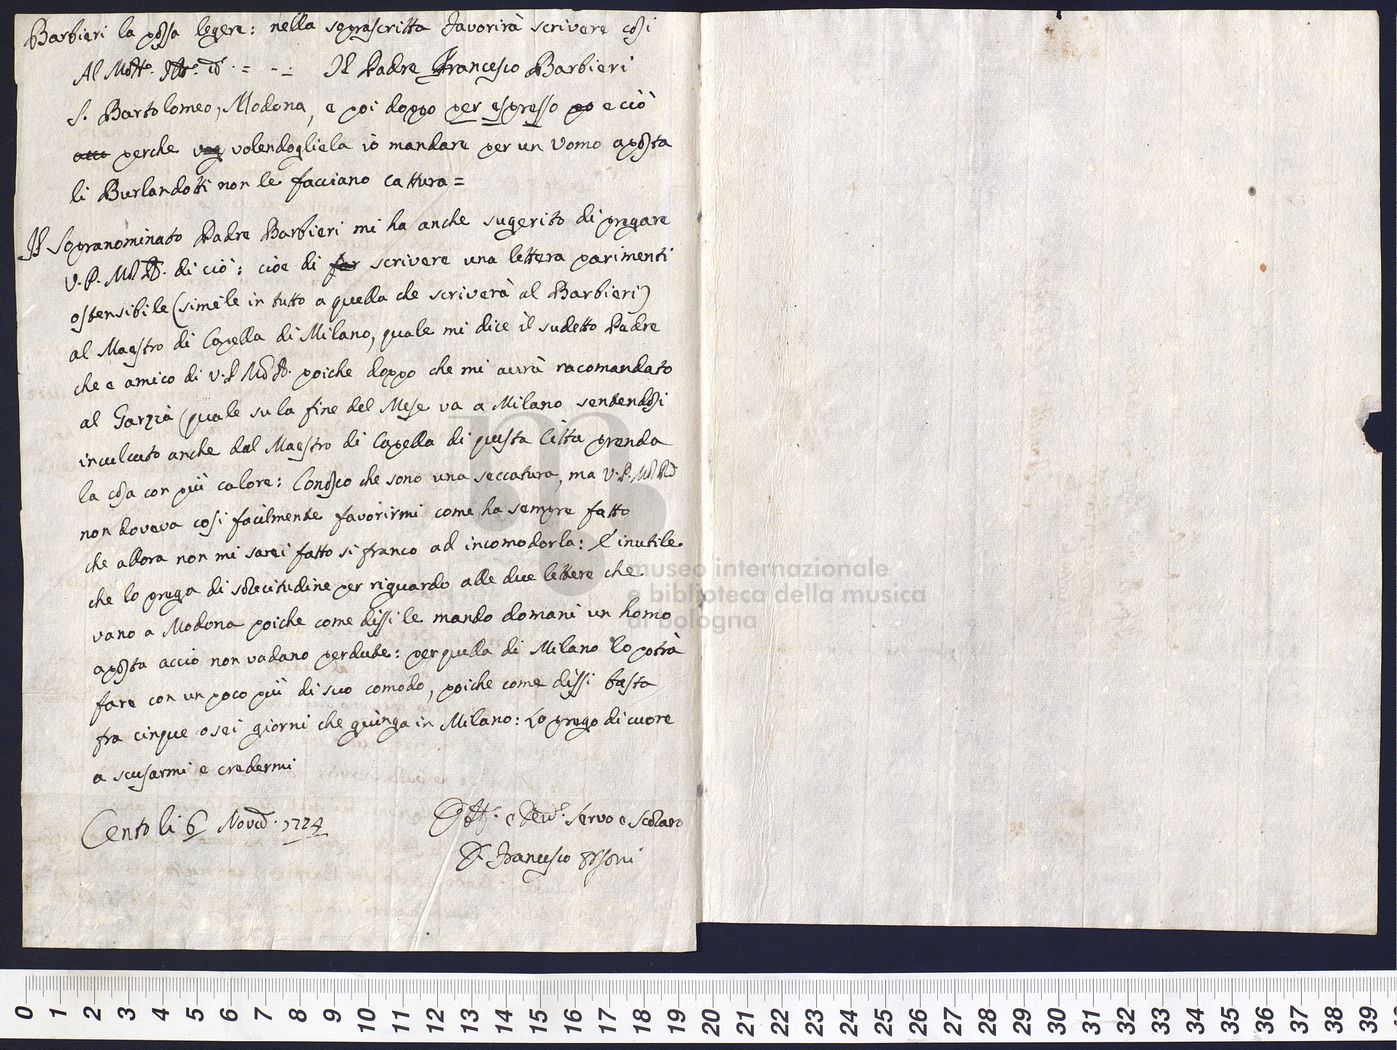 Barbieri la possa legere: nella soprascritta favorirà scrivere cosi
Al Molt. = - - Il Padre Francesco Barbieri
S. Bartolomeo, Modona, e poi doppo per espresso e ciò
perche volendogliela io mandare per un Uomo aposta
li Burlandotti non le facciano cattura =
Il Sopranominato Padre Barbieri mi ha anche sugerito di pregare
V. P. di ciò: cioe di far scrivere una lettera parimenti
ostensibile (simile in tutto a quella che scriverà al Barbieri)
al Maestro di Capella di Milano, quale mi dice il sudetto Padre
che e amico di V. P. poiche doppo che mi avrà racomandato
al Garzia (quale su la fine del Mese va a Milano sentendosi
inculcato anche dal Maestro di Capella di questa Città prenda
la cosa con più calore: Conosco che sono una seccatura, ma V. P.
non doveva cosi facilmente favorirmi come ha sempre fatto
che allora non mi sarei fatto si franco ad incomodarla: È inutile
che lo prega di solecitudine per riguardo alle due lettere che
vano a Modona poiche come dissi le mando domani un homo
aposta acciò non vadano perdute: per quella di Milano lo potrà
fare con un poco più di suo comodo, poiche come dissi basta
fra cinque o sei giorni che giunga in Milano: Lo prego di cuore
a scusarmi e credermi
Cento li 6 Novb. 1774
e Dev. Servo e Scolaro
D. Francesco Orsoni
museo internazionale
e biblioteca della musica
di bologna
0 1 2 3 4 5 6 7 8 9 10 11 12 13 14 15 16 17 18 19 20 21 22 23 24 25 26 27 28 29 30 31 32 33 34 35 36 37 38 39